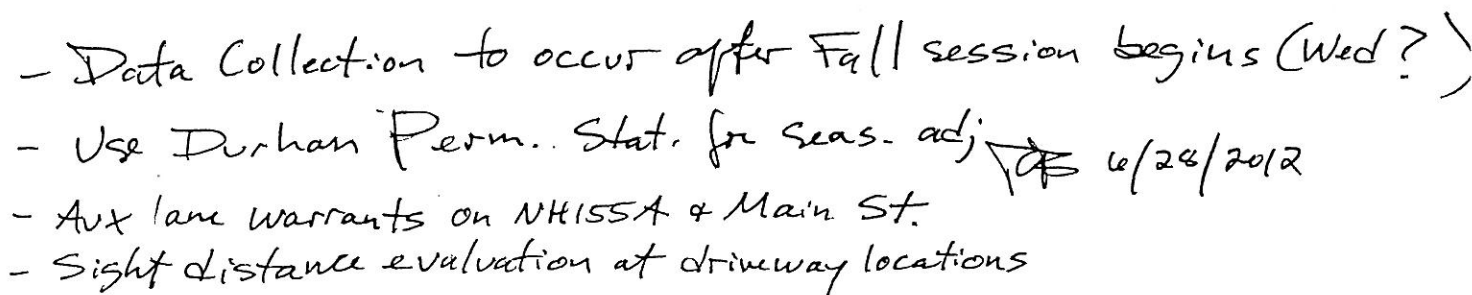 - Data Collection to occur after Fall session begins (Wed?)
- Use Durham Perm. Stat. for seas. adj 6/28/2012
- Aux lane warrants on NH155A & Main St.
- Sight distance evaluation at driveway locations